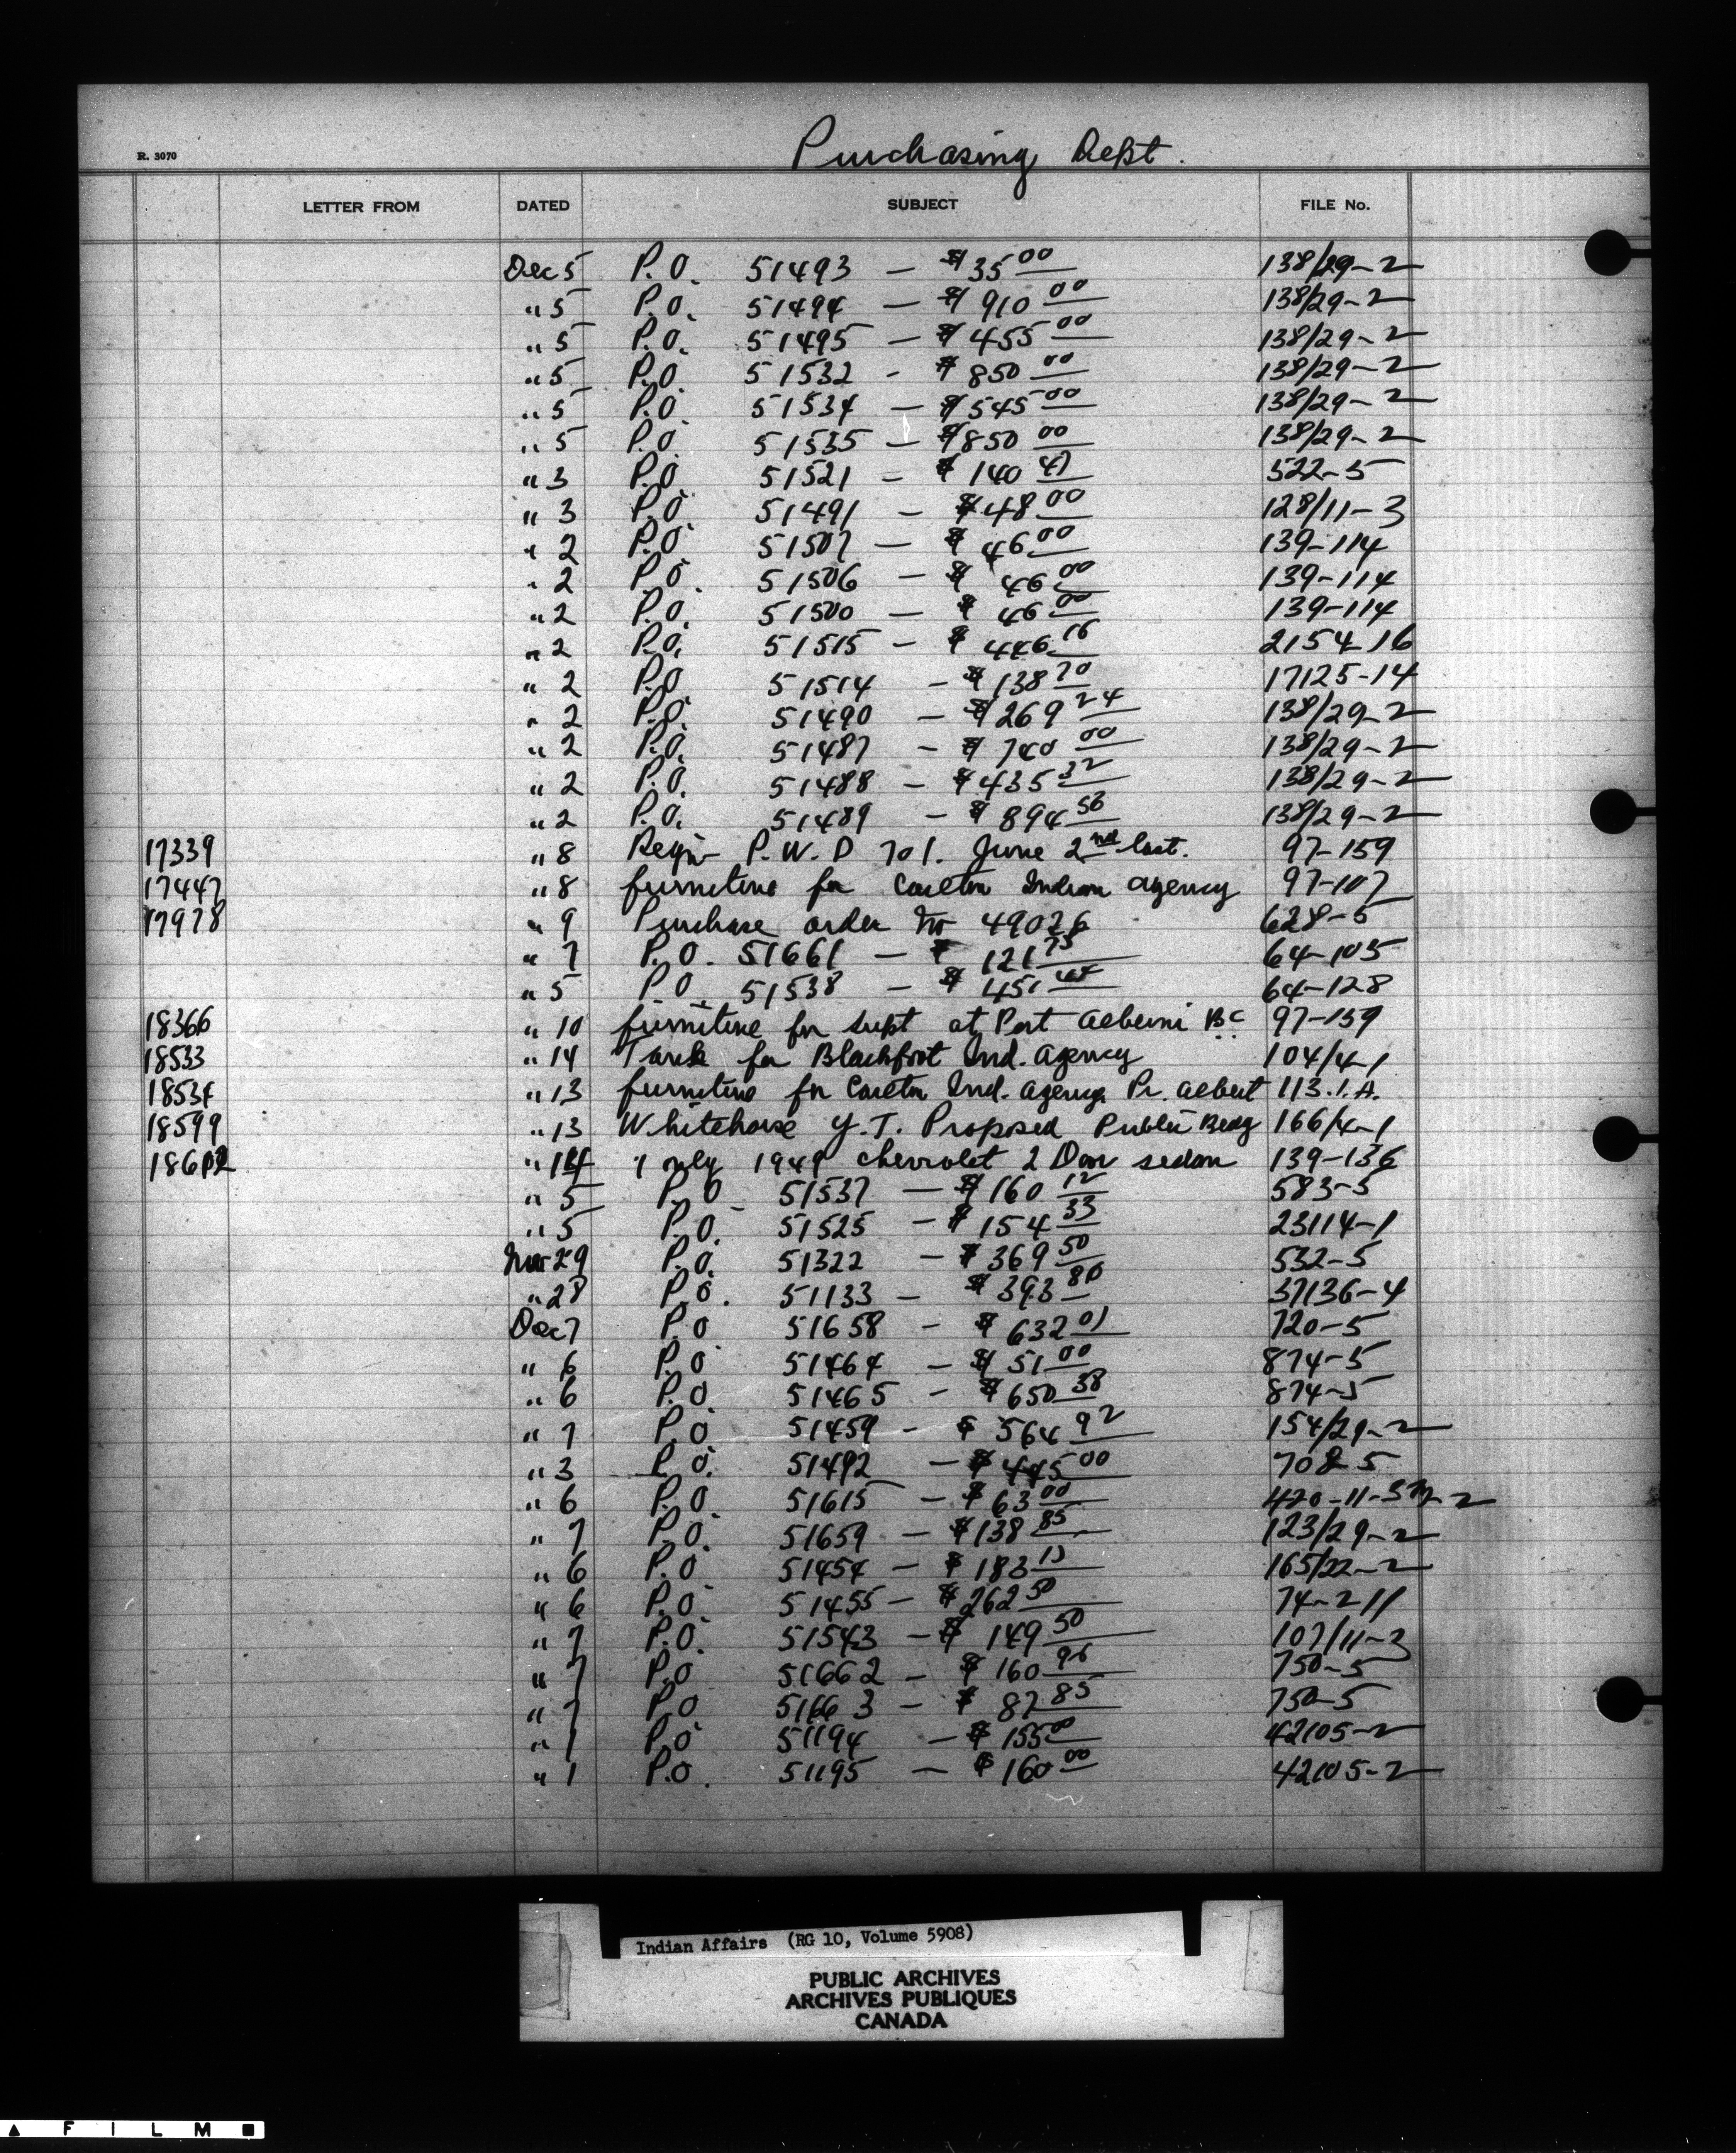 Purchasing Dept.
R. 3070
LETTER FROM DATED SUBJECT FILE No.
Dec 5 P.O. 51493 — $35 00 138/29-2
" 5 P.O. 51494 — $910 00 138/29-2
" 5 P.O. 51495 — $455 00 138/29-2
" 5 P.O. 51532 - $850 00 138/29-2
" 5 P.O. 51534 — $545 00 138/29-2
" 5 P.O. 51535 — $850 00 138/29-2
" 3 P.O. 51521 — $140 47 522-5
" 3 P.O. 51491 — $48 00 128/11-3
" 2 P.O. 51507 — $46 00 139-114
" 2 P.O. 51506 — $46 00 139-114
" 2 P.O. 51500 — $46 00 139-114
" 2 P.O. 51515 — $446 16 2154-16
" 2 P.O. 51514 — $138 70 17125-14
" 2 P.O. 51490 — $269 24 138/29-2
" 2 P.O. 51487 — $740 00 138/29-2
" 2 P.O. 51488 — $435 32 138/29-2
" 2 P.O. 51489 — $894 56 138/29-2
17339 " 8 Reqn P.W.D 701. June 2nd last. 97-159
17447 " 8 furniture for Carlton Indian agency 97-107
17978 " 9 Purchase order No 49026 628-5
" 7 P.O. 51661 — $121 75 64-105
" 5 P.O. 51538 — $451 44 64-128
18366 " 10 furniture for supt at Port Alberni BC 97-159
18533 " 14 Tank for Blackfoot Ind. Agency 104/4-1
18534 " 13 furniture for Carlton Ind. agency. Pr. Albert 113.I.A.
18599 " 13 Whitehorse Y.T. Proposed Public Bldg 166/4-1
18602 " 14 1 only 1949 Chevrolet 2 Door sedan 139-136
" 5 P.O. 51537 — $160 12 583-5
" 5 P.O. 51525 — $154 33 23114-1
Nov 29 P.O. 51322 — $369 50 532-5
" 28 P.O. 51133 — $393 80 37136-4
Dec 7 P.O 51658 — $632 01 720-5
" 6 P.O 51464 — $51 00 874-5
" 6 P.O. 51465 - $650 38 874-5
" 7 P.O 51459 - $564 92 154/29-2
" 3 P.O. 51492 — $445 00 708-5
" 6 P.O. 51615 — $63 00
" 7 P.O. 51659 — $138 85 123/29-2
" 6 P.O 51454 — $183 13 165/22-2
" 6 P.O 51455 — $262 50 74-211
" 7 P.O. 51543 — $149 50 107/11-3
" 7 P.O 51662 — $160 96 750-5
" 7 P.O 51663 — $87 85 750-5
" 1 P.O 51194 — $155 00 42105-2
" 1 P.O. 51195 — $160 00 42105-2
Indian Affairs (RG 10, Volume 5908)
PUBLIC ARCHIVES
ARCHIVES PUBLIQUES
CANADA
FILM